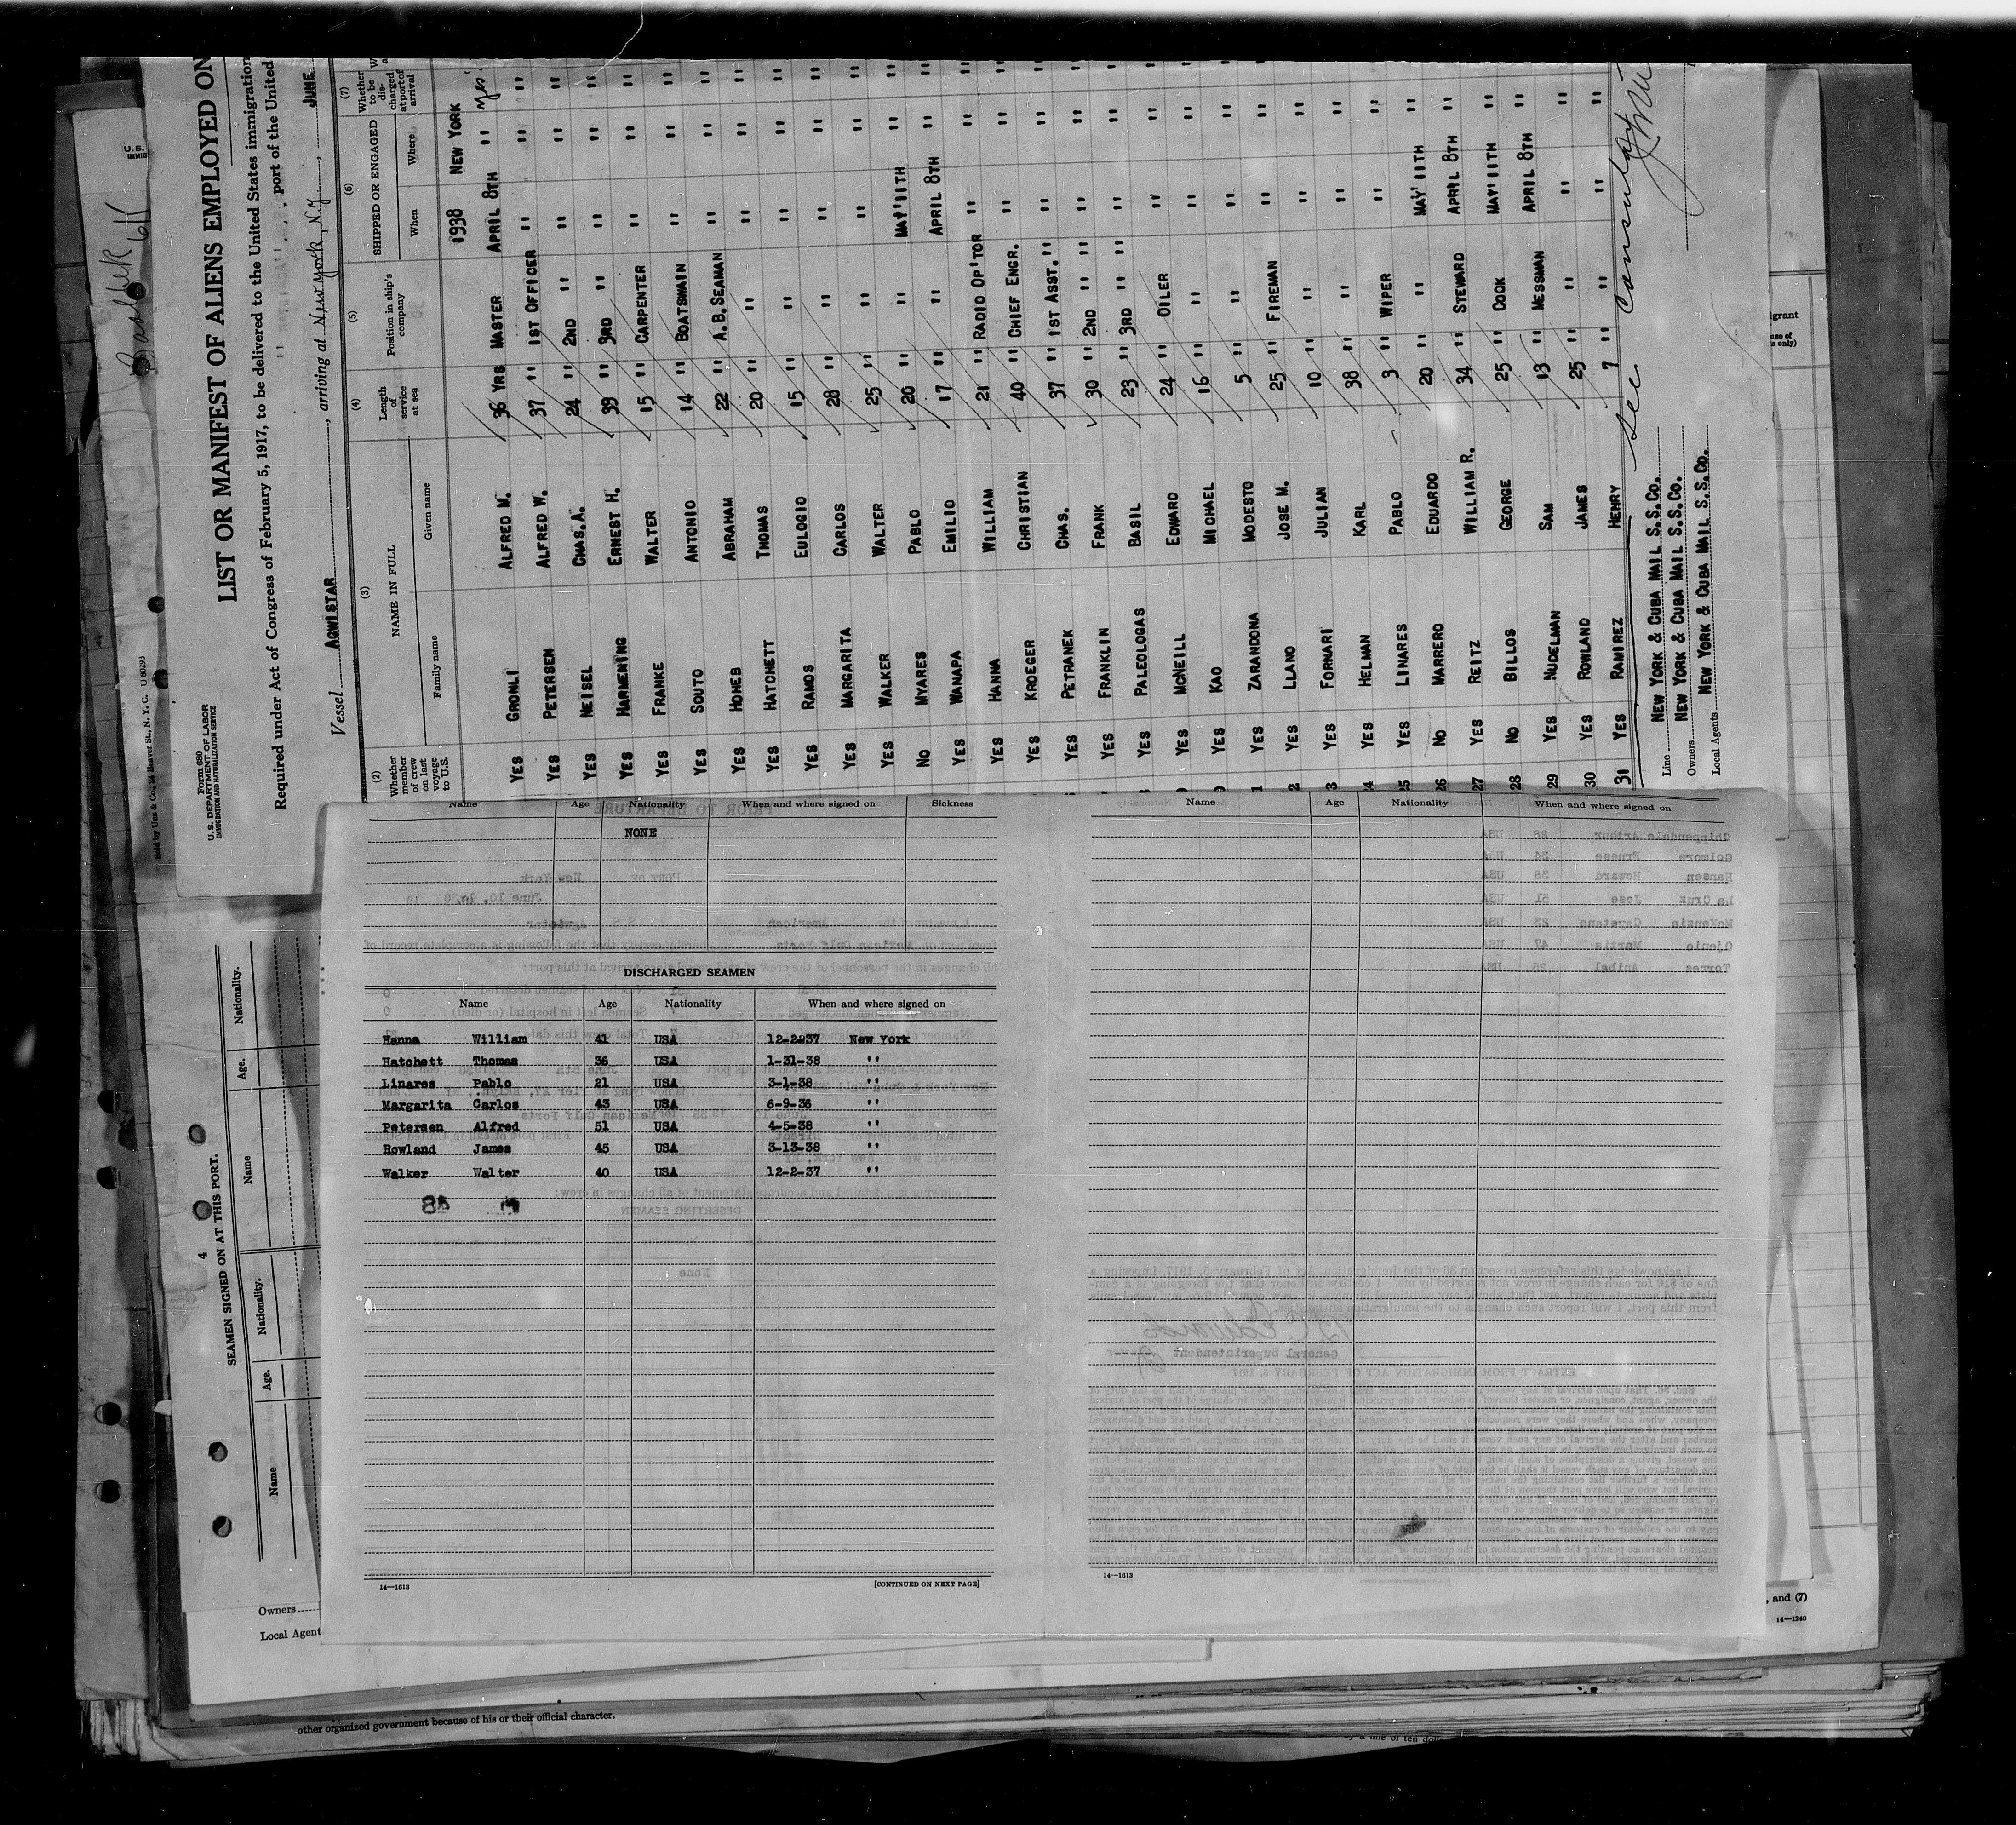 Baddek
611
U.S.
IMMIG
Sold by Unz & Co., 24 Beaver St., N. Y. C. U 80293
Form 680
U. S. DEPARTMENT OF LABOR
IMMIGRATION AND NATURALIZATION SERVICE
LIST OR MANIFEST OF ALIENS EMPLOYED ON
Required under Act of Congress of February 5, 1917, to be delivered to the United States immigration
port of the United
Vessel AGWISTAR, arriving at New York, N.Y., JUNE
(2) Whether member of crew on last voyage to U.S.
(3) NAME IN FULL
Family name Given name
(4) Length of service at sea
(5) Position in ship's company
(6) SHIPPED OR ENGAGED
When Where
(7) Whether to be discharged at port of arrival
1938 NEW YORK
YES GRONLI ALFRED M. 36 YRS MASTER APRIL 8TH " yes
YES PETERSEN ALFRED W. 37 " 1ST OFFICER " " "
YES NEISEL CHAS. A. 24 " 2ND " " " "
YES HARMENING ERNEST H. 39 " 3RD " " " "
YES FRANKE WALTER 15 " CARPENTER " " "
YES SOUTO ANTONIO 14 " BOATSWAIN " " "
YES HOHEB ABRAHAM 22 " A.B.SEAMAN " " "
YES HATCHETT THOMAS 20 " " " " "
YES RAMOS EULOGIO 15 " " " " "
YES MARGARITA CARLOS 28 " " " " "
YES WALKER WALTER 25 " " " " "
NO MYARES PABLO 20 " " MAY 11TH " "
YES WANAPA EMILIO 17 " " APRIL 8TH " "
YES HANNA WILLIAM 21 " RADIO OP'TOR " " "
YES KROEGER CHRISTIAN 40 " CHIEF ENGR. " " "
YES PETRANEK CHAS. 37 " 1ST ASST. " " " "
YES FRANKLIN FRANK 30 " 2ND " " " " "
YES PALEOLOGAS BASIL 23 " 3RD " " " " "
YES MCNEILL EDWARD 24 " OILER " " "
YES KAO MICHAEL 16 " " " " "
YES ZARANDONA MODESTO 5 " " " " "
YES LLANO JOSE M. 25 " FIREMAN " " "
YES FORNARI JULIAN 10 " " " " "
YES HELMAN KARL 38 " " " " "
YES LINARES PABLO 3 " WIPER " " "
26 NO MARRERO EDUARDO 20 " " MAY 11TH " "
27 YES REITZ WILLIAM R. 34 " STEWARD APRIL 8TH " "
28 NO BILLOS GEORGE 25 " COOK MAY 11TH " "
29 YES NUDELMAN SAM 13 " MESSMAN APRIL 8TH " "
30 YES ROWLAND JAMES 25 " " " " "
31 YES RAMIREZ HENRY 7 " " " " "
see consular
Line NEW YORK & CUBA MAIL S.S.CO.
Owners NEW YORK & CUBA MAIL S.S.CO.
Local Agents NEW YORK & CUBA MAIL S.S.CO.
Name Age Nationality When and where signed on Sickness
NONE
DISCHARGED SEAMEN
Name Age Nationality When and where signed on
Hanna William 41 USA 12-2-37 New York
Hatchett Thomas 36 USA 1-31-38 "
Linares Pablo 21 USA 3-1-38 "
Margarita Carlos 43 USA 6-9-36 "
Petersen Alfred 51 USA 4-5-38 "
Rowland James 45 USA 3-13-38 "
Walker Walter 40 USA 12-2-37 "
14—1613 [CONTINUED ON NEXT PAGE]
Name Age Nationality When and where signed on
14—1613
4
SEAMEN SIGNED ON AT THIS PORT.
Name Age. Nationality. Name Age. Nationality.
Owners
Local Agent
, and (7)
14—1240
other organized government because of his or their official character.